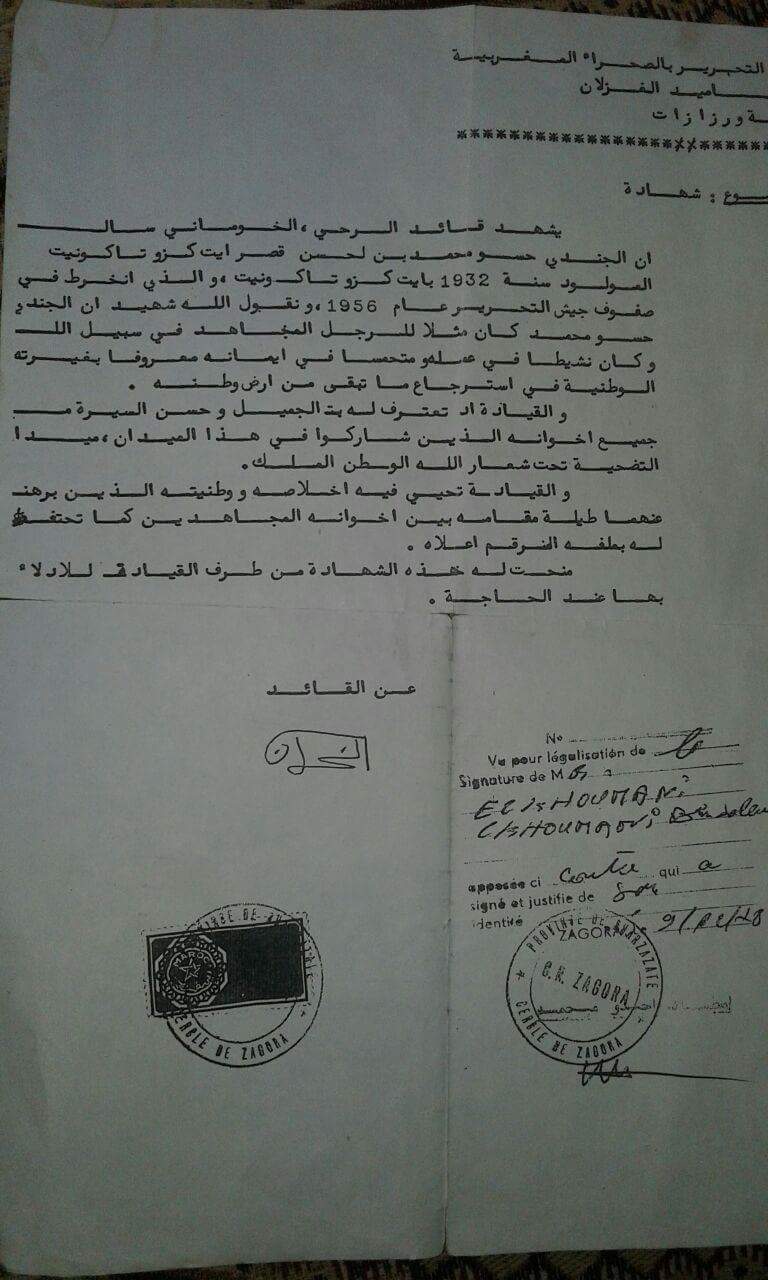 التحرير بالصحراء المغربية
اميد الغزلان
ة ورزازات
وع : شهادة
يشهد قائد الرحى ، الخوماني سالـ
ان الجندي حسو محمد بن لحسن قصر ايت كزو تاكونيت
المولود سنة 1932 بايت كزو تاكونيت ، و الذي انخرط في
صفوف جيش التحرير عام 1956 ، و نقول الله شهيد ان الجندي
حسو محمد كان مثلا للرجل المجاهد في سبيل اللـ
و كان نشيطا في عمله و متحمسا في ايمانه معروفا بغيرته
الوطنية في استرجاع ما تبقى من ارض وطنه .
و القيادة اذ تعترف له بت الجميل و حسن السيرة مـ
جميع اخوانه الذين شاركوا في هذا الميدان ، ميدا
التضحية تحت شعار الله الوطن الملك .
و القيادة تحيي فيه اخلاصه و وطنيته الذين برهنـ
عنهما طيلة مقامه بين اخوانه المجاهدين كما تحتفـ
له بملفه المرقم اعلاه .
منحت له هذه الشهادة من طرف القيادة للادلاء
بها عند الحاجة .
عن القائد
No
Vu pour légalisation de la
Signature de M
EL KHOUMANI
apposée ci contre qui a
signé et justifie de son
identité
ZAGORA
PROVINCE DE OUARZAZATE
C.R. ZAGORA
CERCLE DE ZAGORA
MAROC
CERCLE DE ZAGORA